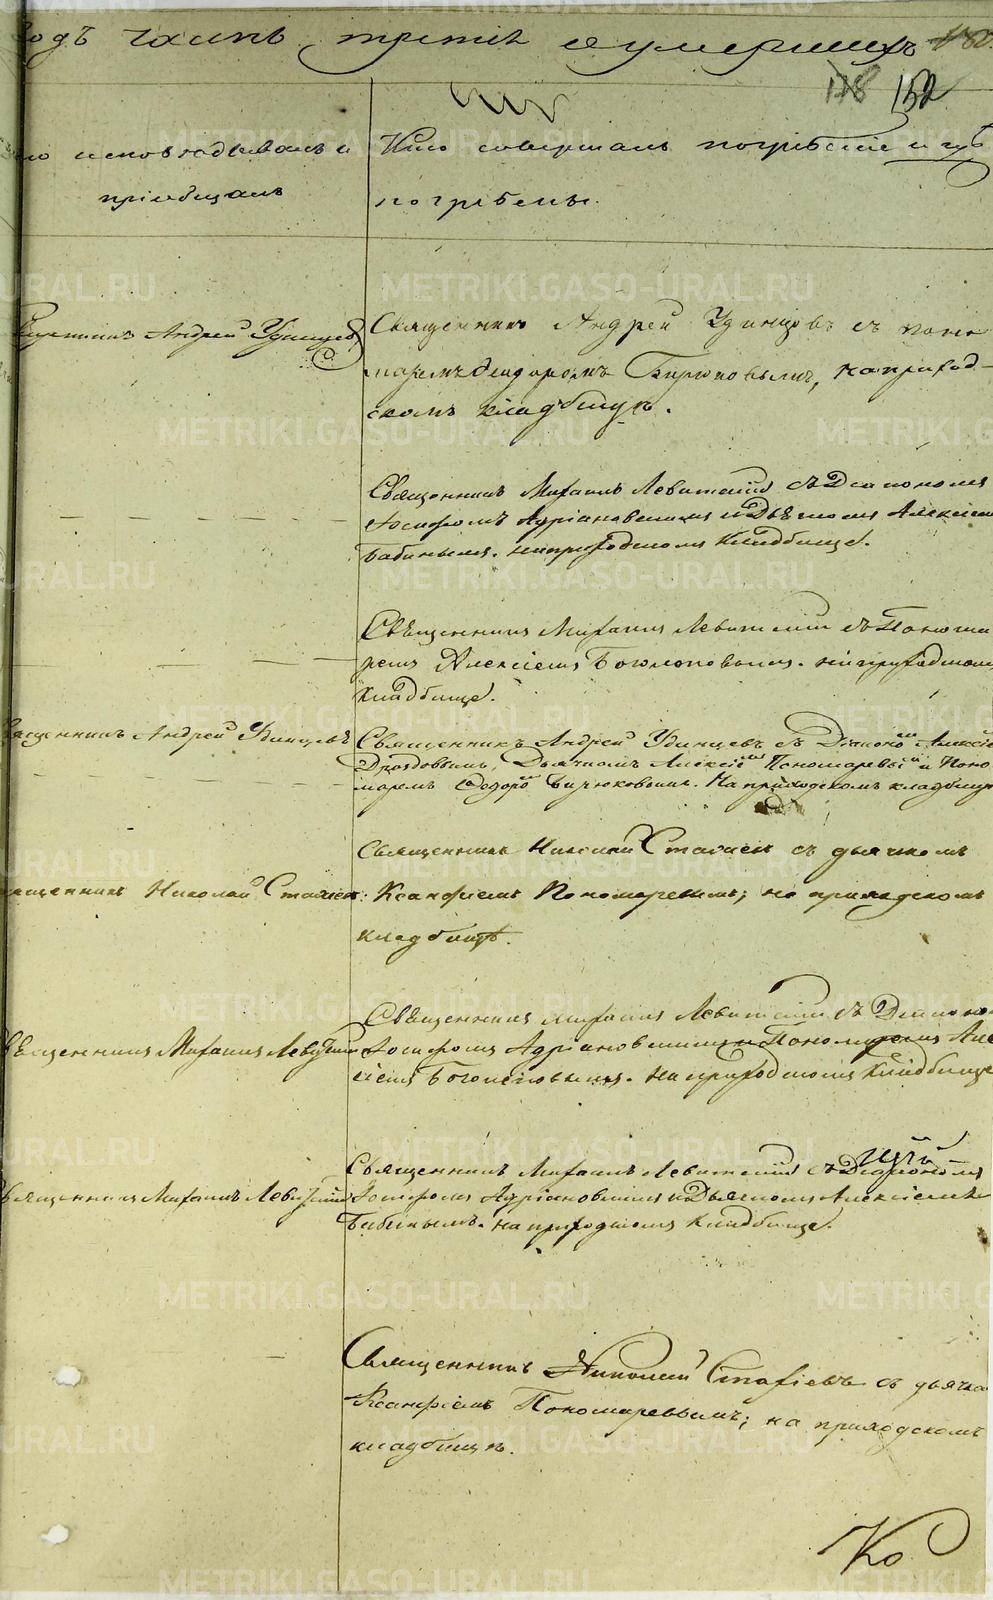 годъ часть третія о умершихъ
118 152
исповѣдывалъ и
пріобщалъ
Кто совершалъ погребеніе и гдѣ
погребены.
Священникъ Андрей Удинцев
Священникъ Андрей Удинцовъ съ поно
маремъ Феодоромъ Бирюковымъ, на приход-
скомъ кладбищѣ.
Священникъ Михаилъ Левитскій съ Діакономъ
Іосифомъ Адріановскимъ и Дьячкомъ Алексіем
Бабинымъ. на приходскомъ кладбище.
Священникъ Михаилъ Левитскій съ Понома
ремъ Алексіемъ Богомоловымъ. на приходском
кладбище.
Священникъ Андрей Удинцевъ
Священникъ Андрей Удинцевъ съ Діаконо Алексіе
Дроздовымъ, Дьячкомъ Алексіе Пономаревы и Поно
маремъ Федоро Бирюковымъ. На приходскомъ кладбищѣ
Священникъ Николай Стахіев
Священникъ Николай Стахіев съ дьячкомъ
Ксанфіемъ Пономаревымъ; на приходскомъ
кладбищѣ.
Священникъ Михаилъ Левитскій
Священникъ Михаилъ Левитскій съ Діаконо
Іосифомъ Адріановскимъ и Пономаремъ Але
ксіемъ Богомоловымъ. на приходскомъ кладбище
Священникъ Михаилъ Левитскій
Священникъ Михаилъ Левитскій съ Діакономъ
Іосифомъ Адріановскимъ и Дьячкомъ Алексіемъ
Бабинымъ. на приходскомъ кладбище.
Священникъ Николай Стафіевъ съ дьячко
Ксанфіемъ Пономаревымъ; на приходскомъ
кладбищѣ.
Ко